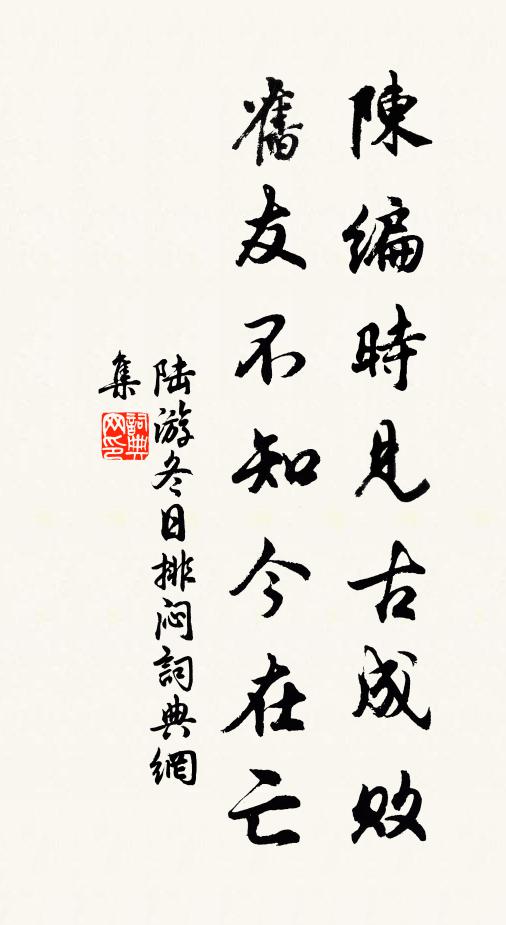 陳編時見古成敗
舊友不知今在亡
陆游冬日排闷詞典網
集
詞典网印